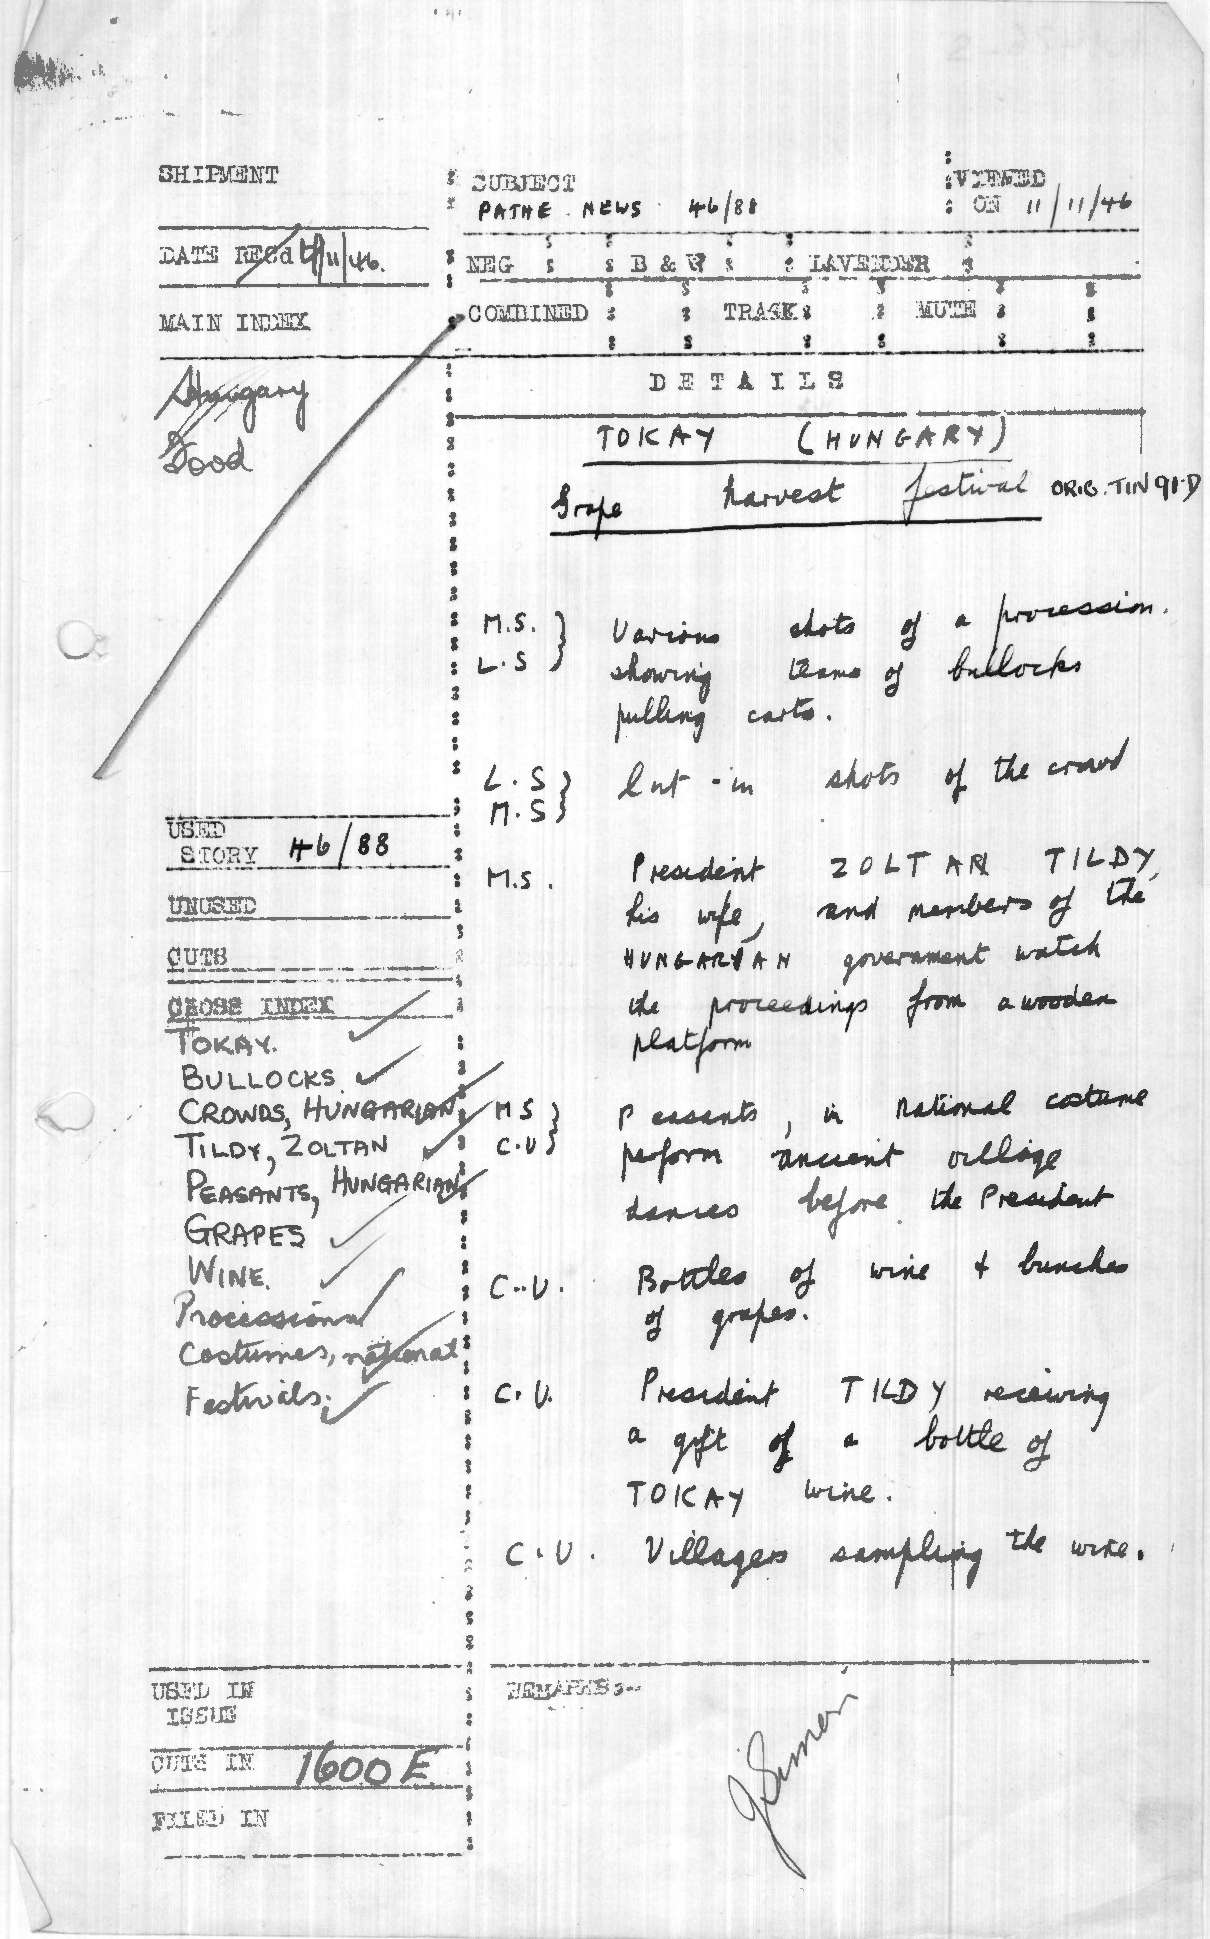 SHIPMENT
SUBJECT
PATHE NEWS 46/88
VIEWED
ON 11/11/46
DATE RECd 11/46.
NEG B & W LAVENDER
MAIN INDEX
COMBINED TRACK MUTE
DETAILS
Hungary
Food
TOKAY (HUNGARY)
Grape harvest festival ORIG. TIN 91D
M.S. Various shots of a procession.
L.S showing teams of bullocks
pulling carts.
L.S Cut-in shots of the crowd
M.S
M.S. President ZOLTAN TILDY,
his wife, and members of the
HUNGARIAN government watch
the proceedings from a wooden
platform
MS Peasants, in national costume
C.U perform ancient village
dances before the President
C.U. Bottles of wine & bunches
of grapes.
C.U. President TILDY receiving
a gift of a bottle of
TOKAY wine.
C.U. Villagers sampling the wine.
USED
STORY 46/88
UNUSED
CUTS
CROSS INDEX
TOKAY.
BULLOCKS
CROWDS, HUNGARIAN
TILDY, ZOLTAN
PEASANTS, HUNGARIAN
GRAPES
WINE.
Processions
Costumes, national
Festivals.
USED IN
ISSUE
CUTS IN 1600E
FILED IN
REMARKS:--